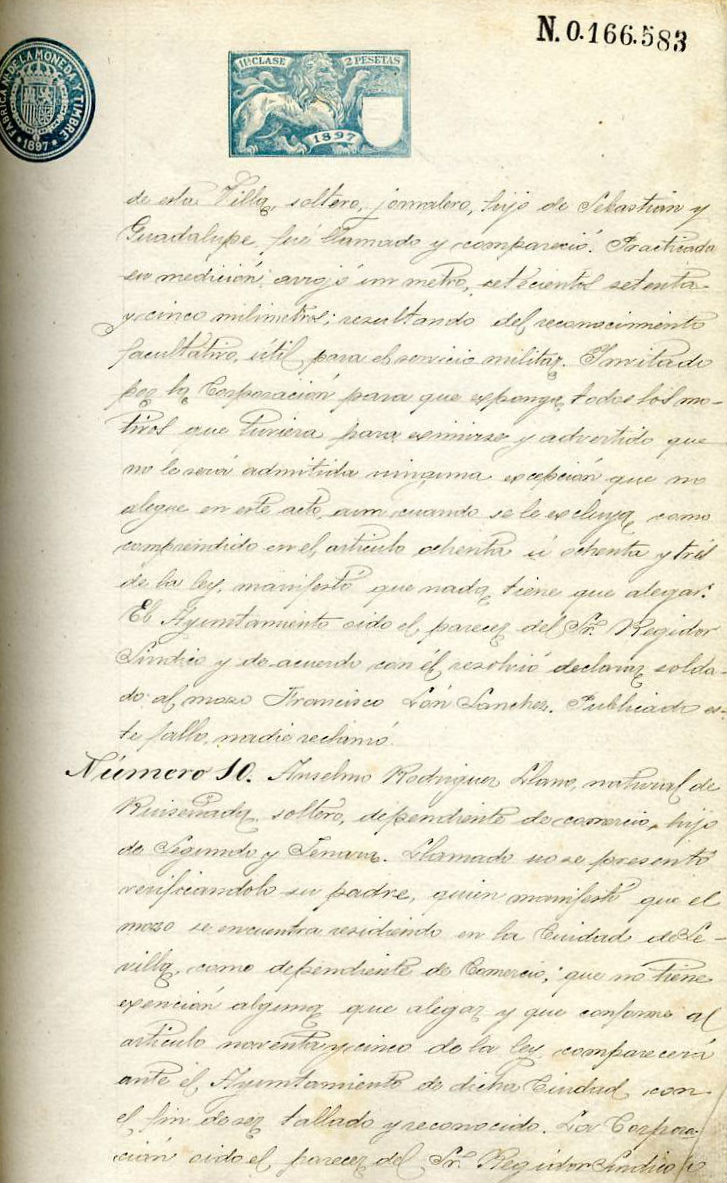 N.0.166.583
FABRICA NAL DE LA MONEDA Y TIMBRE
* 1897 *
11ª CLASE 2 PESETAS
1897
de esta Villa, soltero, jornalero, hijo de Sebastián y
Guadalupe, fué llamado y compareció. Practicada
su medición, arrojó un metro, setecientos setenta
y cinco milimetros; resultando del reconocimiento
facultativo, útil para el servicio militar. Invitado
por la Corporación para que exponga todos los mo-
tivos que tuviera para eximirse y advertido que
no le será admitida ninguna excepción que no
alegue en este acto, aun cuando se le excluya como
comprendido en el articulo ochenta ú ochenta y trés
de la ley, manifestó que nada tiene que alegar.
El Ayuntamiento oido el parecer del Sr. Regidor
Síndico y de acuerdo con él resolvió declarar solda-
do al mozo Francisco Sánchez. Publicado es-
te fallo, nadie reclamó.
Número 10. Anselmo Rodriguez Llano, natural de
Ruiseñada, soltero, dependiente de comercio, hijo
de Segundo y Llamado no se presentó
verificandolo su padre, quien manifestó que el
mozo se encuentra residiendo en la Ciudad de Se-
villa, como dependiente de Comercio; que no tiene
exención alguna que alegar y que conforme al
articulo noventa y cinco de la ley, comparecerá
ante el Ayuntamiento de dicha Ciudad con
el fin de ser tallado y reconocido. La Corpora-
ción oido el parecer del Sr. Regidor Síndico